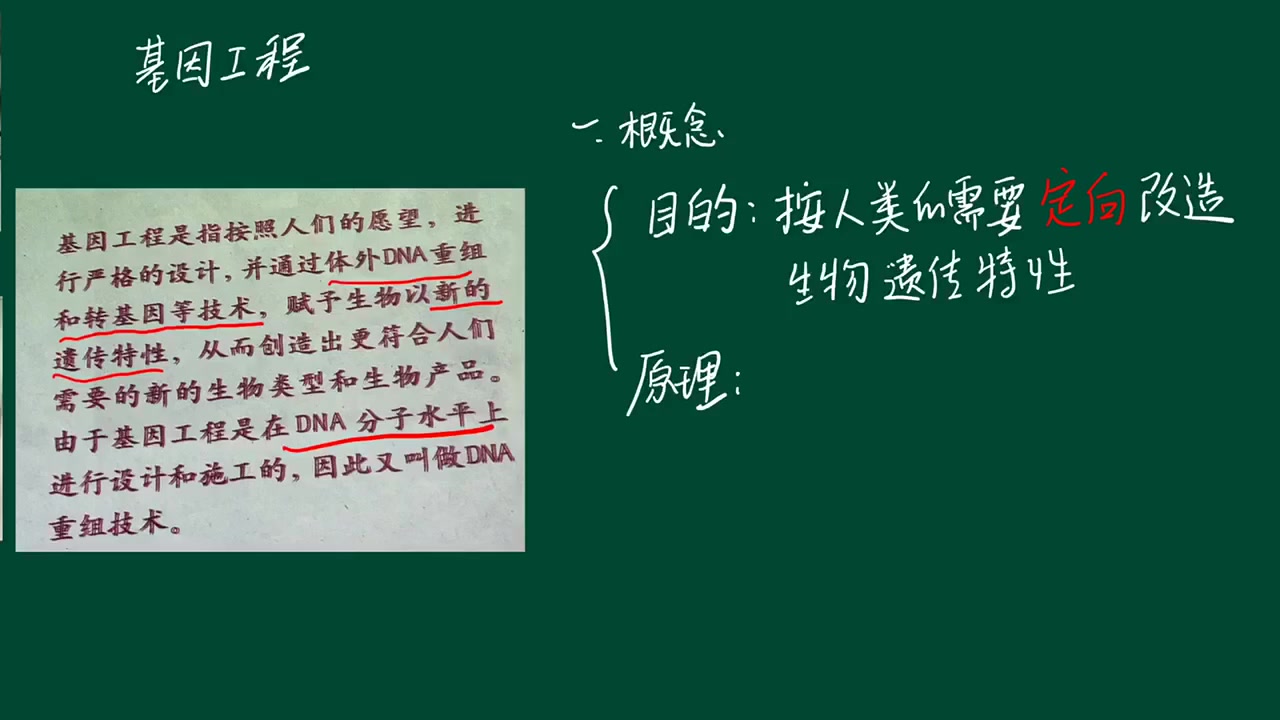 基因工程
一.概念
目的:按人类的需要定向改造
生物遗传特性
原理:
基因工程是指按照人们的愿望，进
行严格的设计，并通过体外DNA重组
和转基因等技术，赋予生物以新的
遗传特性，从而创造出更符合人们
需要的新的生物类型和生物产品。
由于基因工程是在DNA分子水平上
进行设计和施工的，因此又叫做DNA
重组技术。